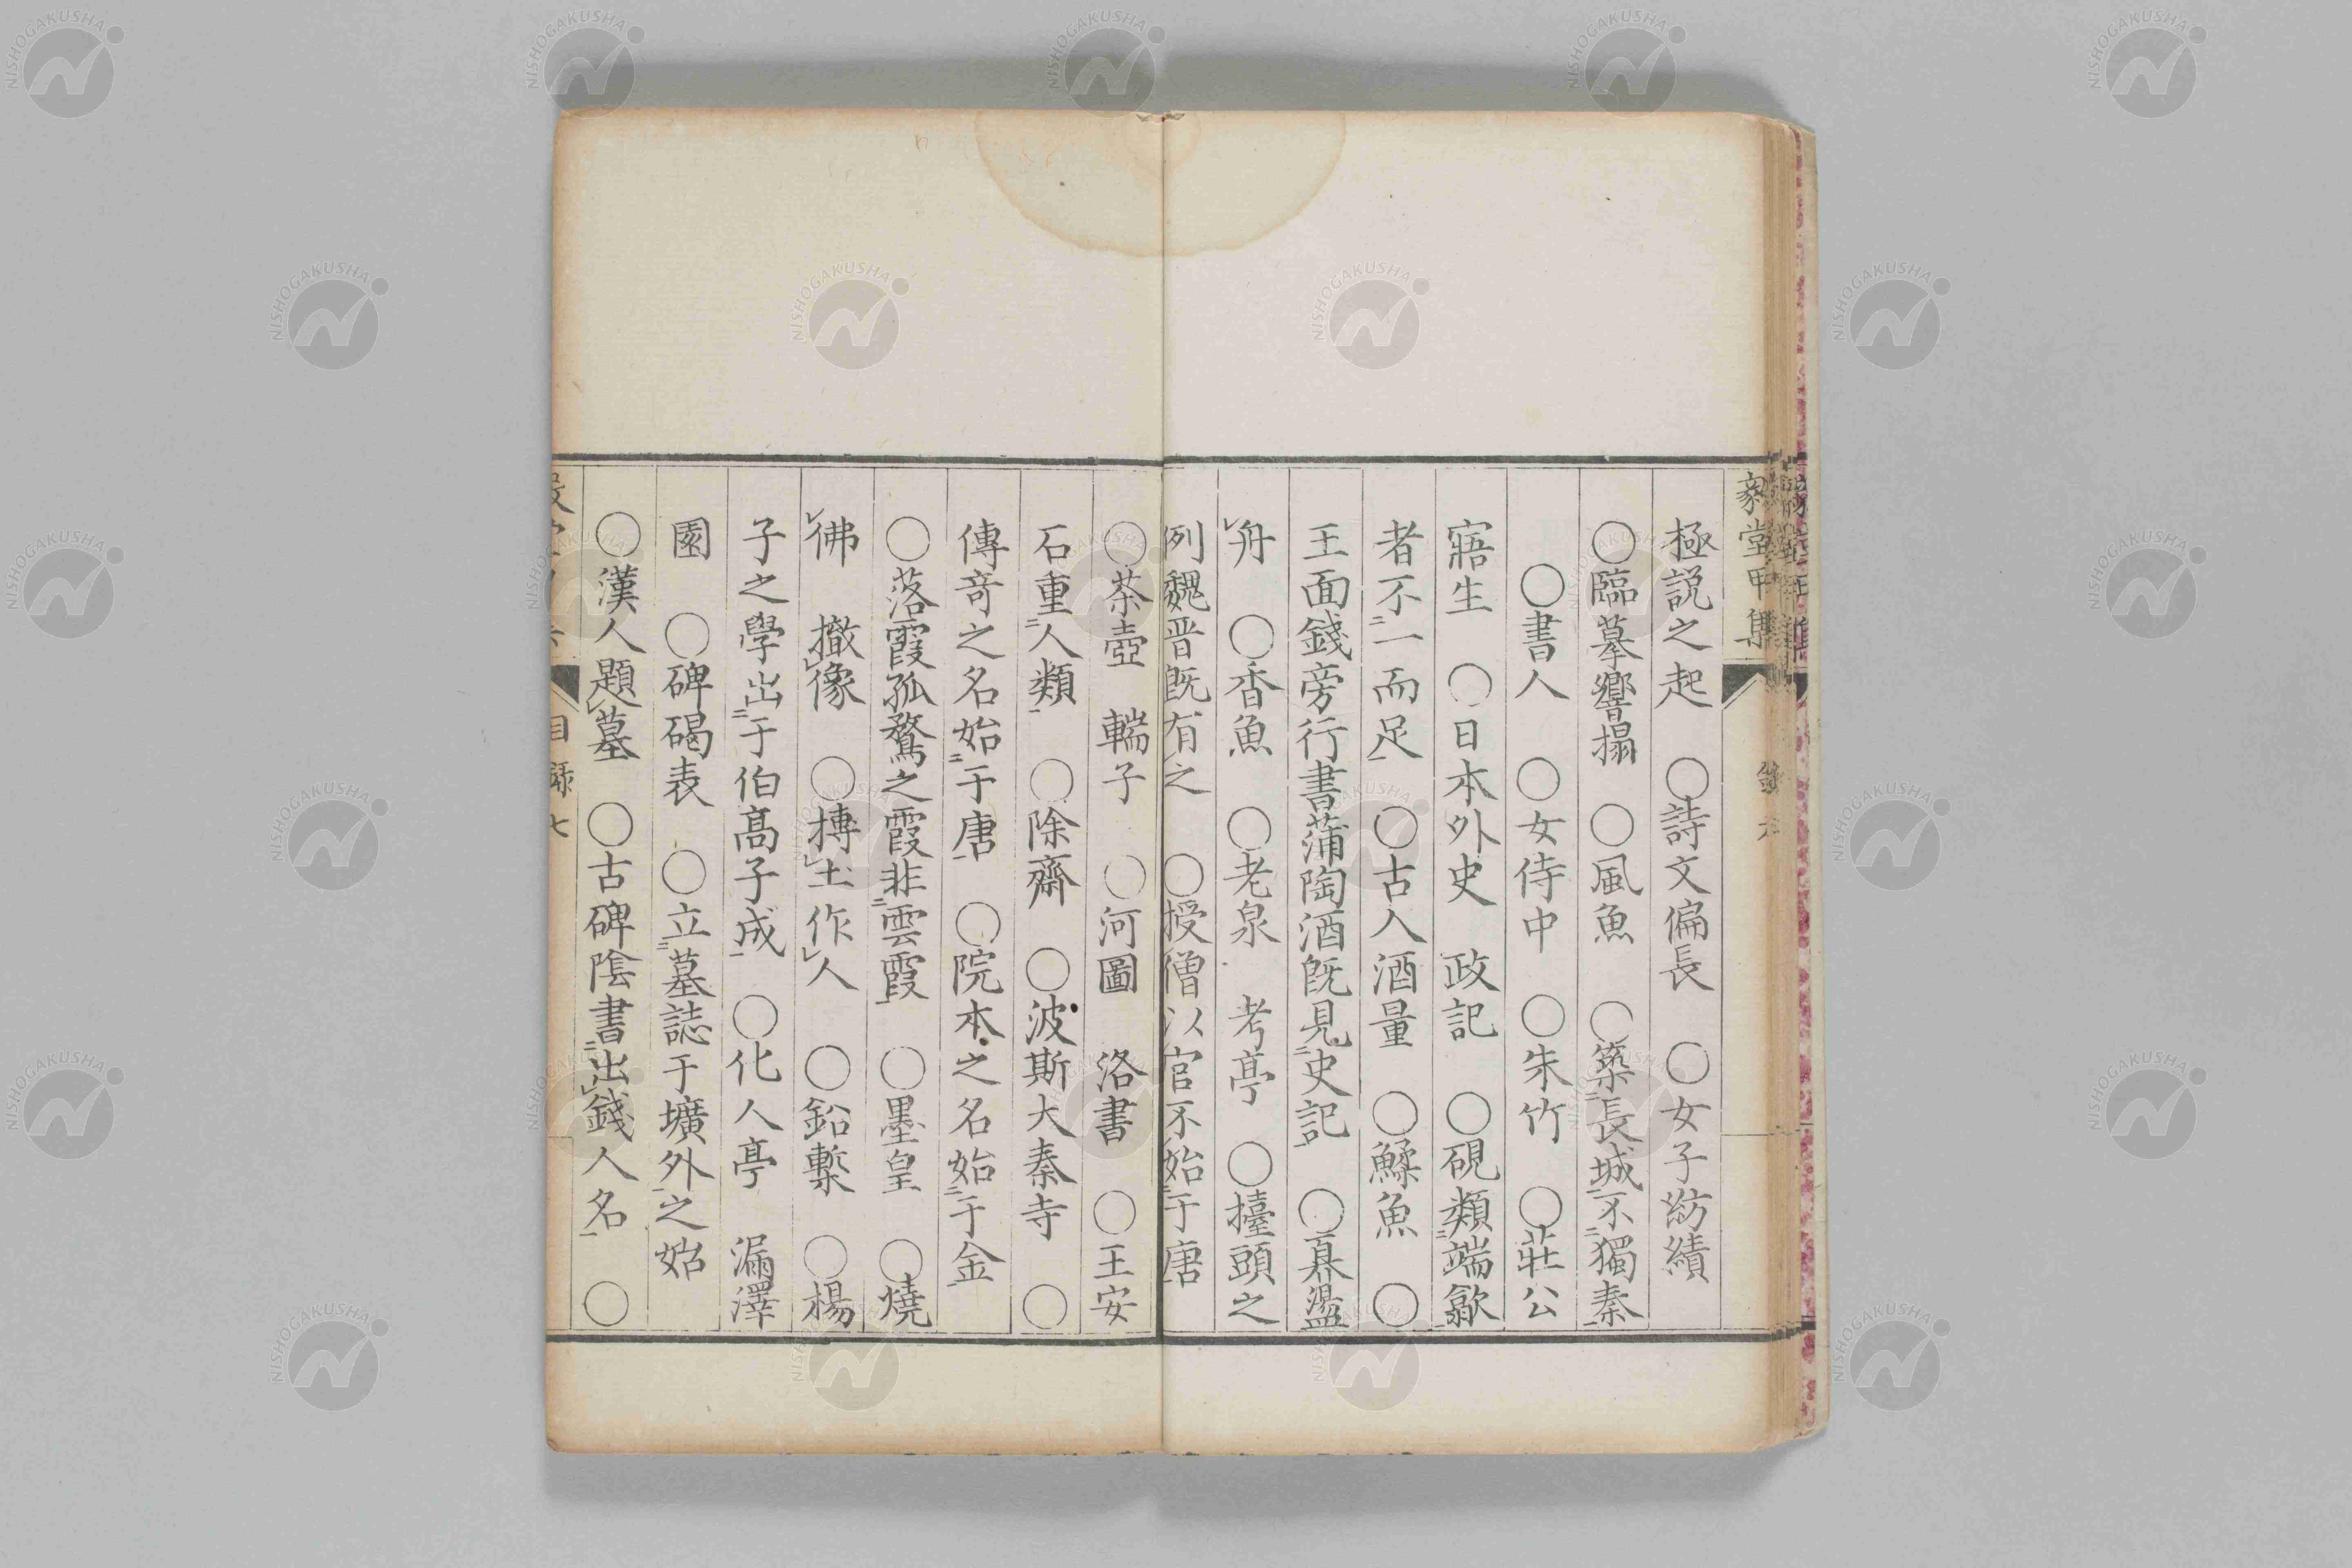 極説之起　〇詩文偏長　〇女子紡績
〇臨摹響搨　〇風魚　〇築長城不獨秦
〇書人　〇女侍中　〇朱竹　〇莊公
寤生　〇日本外史　政記　〇硯類端歙
者不一而足　〇古人酒量　〇鰇魚　〇
王面錢旁行書蒲陶酒既見史記　〇冪䀋
舟　〇香魚　〇老泉　考亭　〇擡頭之
例魏晋既有之　〇授僧以官不始于唐
〇茶壺　轜子　〇河圖　洛書　〇王安
石重人類　〇除齋　〇波斯大秦寺　〇
傳竒之名始于唐　〇院本之名始于金
〇落霞孤鶩之霞非雲霞　〇墨皇　〇燒
佛　撤像　〇摶土作人　〇鉛槧　〇楊
子之學出于伯髙子成　〇化人亭　漏澤
園　〇碑碣表　〇立墓誌于壙外之始
〇漢人題墓　〇古碑陰書出錢人名　〇
目録七
NISHOGAKUSHA